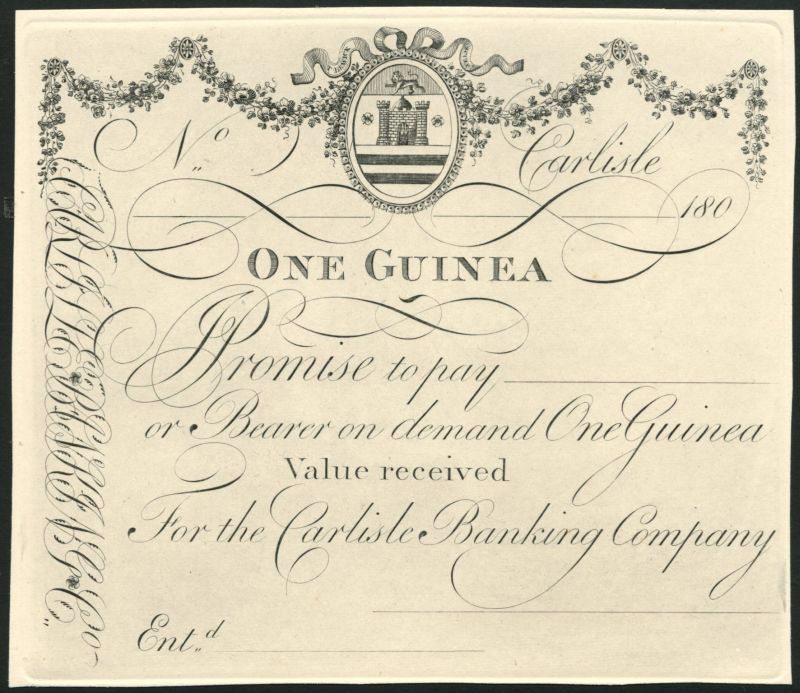 N,,º
Carlisle
180
ONE GUINEA
I Promise to pay
or Bearer on demand One Guinea
Value received
For the Carlisle Banking Company
Ent,,d